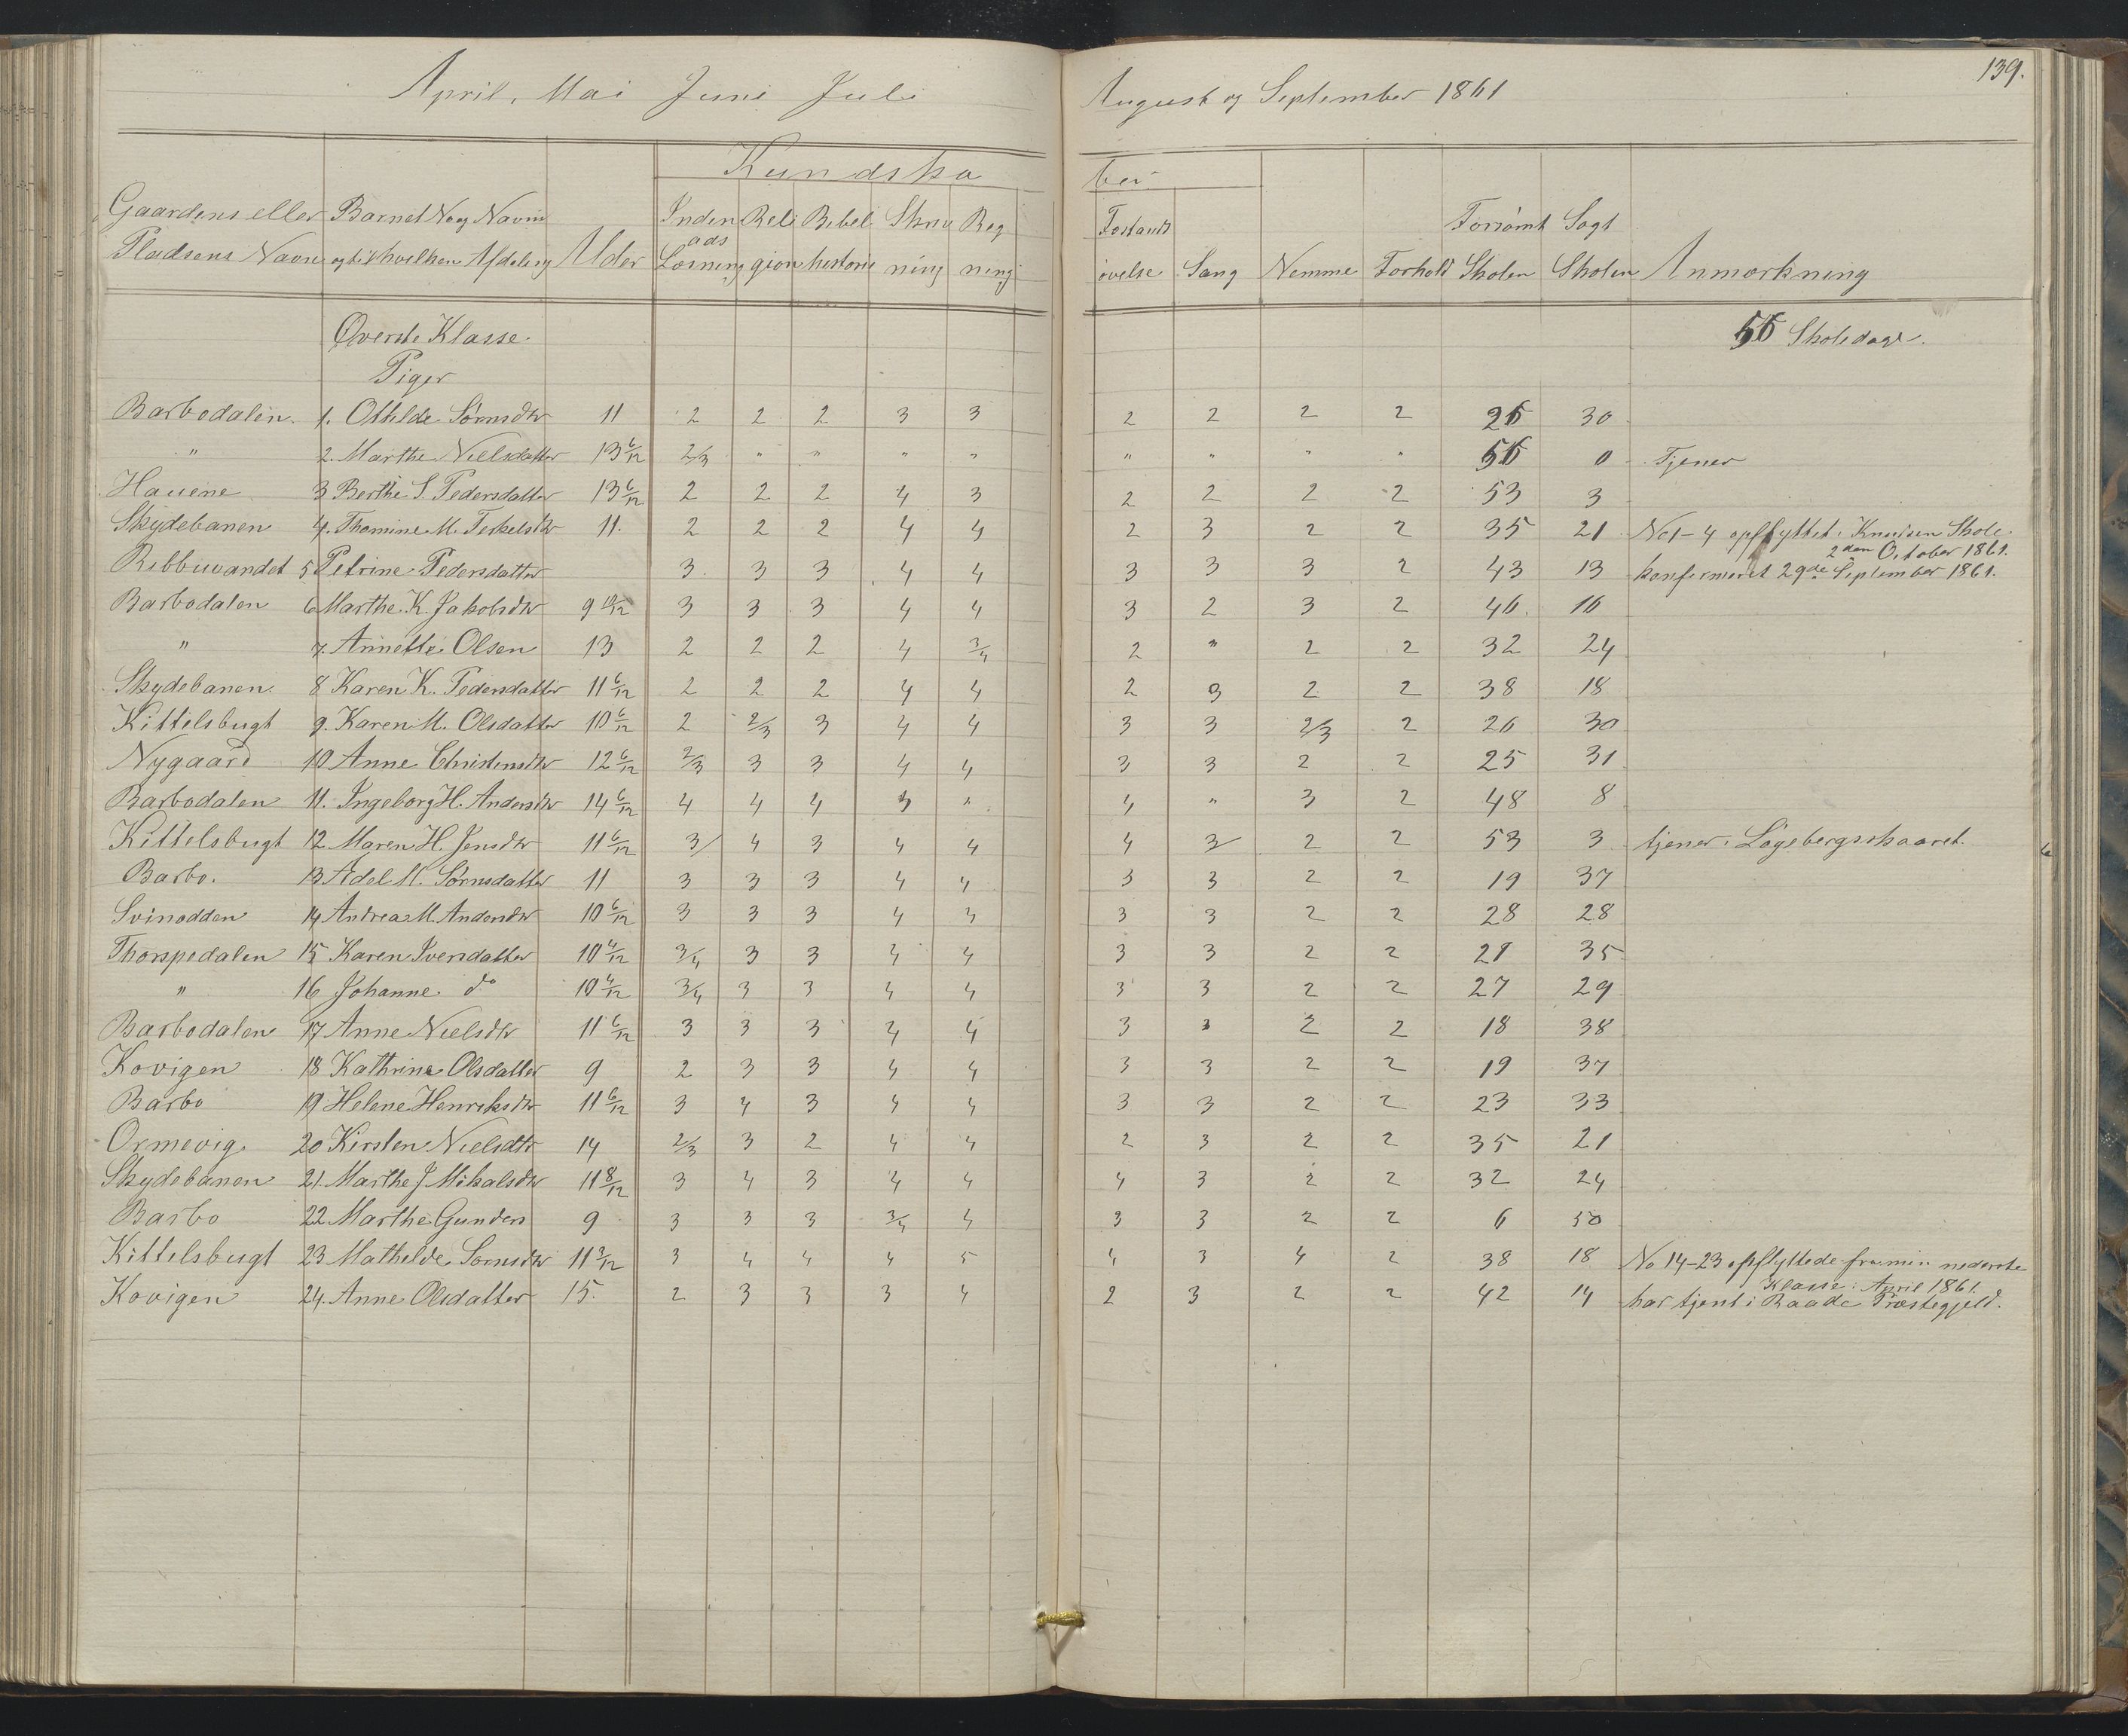 139.
April, Mai Juni Juli August og September 1861
Kundska ber
Gaardens eller Barnets No og Navn Inden Reli Bibel Skriv Reg Forstands Forsømt Søgt
ads
Pladsens Navn og til hvilken Afdeling Alder Læsning gion historie ning ning øvelse Sang Nemme Forhold Skolen Skolen Anmærkning
Øverste Klasse. 56 Skoledage.
Piger
Barbodalen. 1. Othilde Sørnsdtr 11 2 2 2 3 3 2 2 2 2 26 30
" 2. Marthe Nielsdatter 13 6/12 2/3 " " " " " " " " 56 0 Tjener
Havene 3 Berthe S. Pedersdatter 13 6/12 2 2 2 4 3 2 2 2 2 53 3
Skydebanen 4. Thomine M. Terkelsdtr 11. 2 2 2 4 4 2 3 2 2 35 21 No 1-4 opflyttet i Knudsen Skole
2den October 1861.
Ribbuvandet 5 Petrine Pedersdatter 3 3 3 4 4 3 3 3 2 43 13 konfirmeret 29de September 1861.
Barbodalen 6 Marthe K. Jakobsdtr 9 10/12 3 3 3 4 4 3 2 3 2 40. 16
" 7. Annette Olsen 13 2 2 2 4 3/4 2 " 2 2 32 24
Skydebanen. 8 Karen K. Pedersdatter 11 6/12 2 2 2 4 4 2 3 2 2 38 18
Kittelsbugt 9. Karen M. Olsdatter 10 6/12 2 2/3 3 4 4 3 3 2/3 2 26 30
Nygaard 10 Anne Christensdtr 12 6/12 2/3 3 3 4 4 3 3 2 2 25 31
Barbodalen 11. Ingeborg H. Andersdtr 14 6/12 4 4 4 5 " 4 " 3 2 48 8
Kittelsbugt 12 Maren H. Jensdtr 11 6/12 3 4 3 4 4 4 3 2 2 53 3 tjener i Lögebergsskaaret.
Barbo. 13 Adel M. Sørnsdatter 11 3 3 3 4 4 3 3 2 2 19 37
Svinodden 14 Andrea M. Andersdtr 10 6/12 3 3 3 4 4 3 3 2 2 28 28
Thorspedalen 15 Karen Iversdatter 10 4/12 3/4 3 3 4 4 3 3 2 2 21 35
" 16 Johanne do 10 4/12 3/4 3 3 4 4 3 3 2 2 27 29
Barbodalen 17 Anne Nielsdtr 11 6/12 3 3 3 4 4 3 3 2 2 18 38
Kovigen 18 Kathrine Olsdatter 9 2 3 3 4 4 3 3 2 2 19 37
Barbo 19 Helene Henriksdtr 11 6/12 3 4 3 4 4 3 3 2 2 23 33
Ormevig 20 Kirsten Nielsdtr 14 2/3 3 2 4 4 2 3 2 2 35 21
Skydebanen 21. Marthe J Mikalsdtr 11 8/12 3 4 3 4 4 4 3 2 2 32 24
Barbo 22 Marthe Gunders 9 3 3 3 3/4 4 3 3 2 2 6 50
Kittelsbugt 23 Mathelde Sørnsdtr 11 3/12 3 4 4 4 5 4 3 4 2 38 18 No 14-23 opflyttede fra min nederste
Klasse i April 1861.
Kovigen 24. Anne Olsdatter 15. 2 3 3 3 4 2 3 2 2 42 14 har tjent i Raade Præstegjeld.